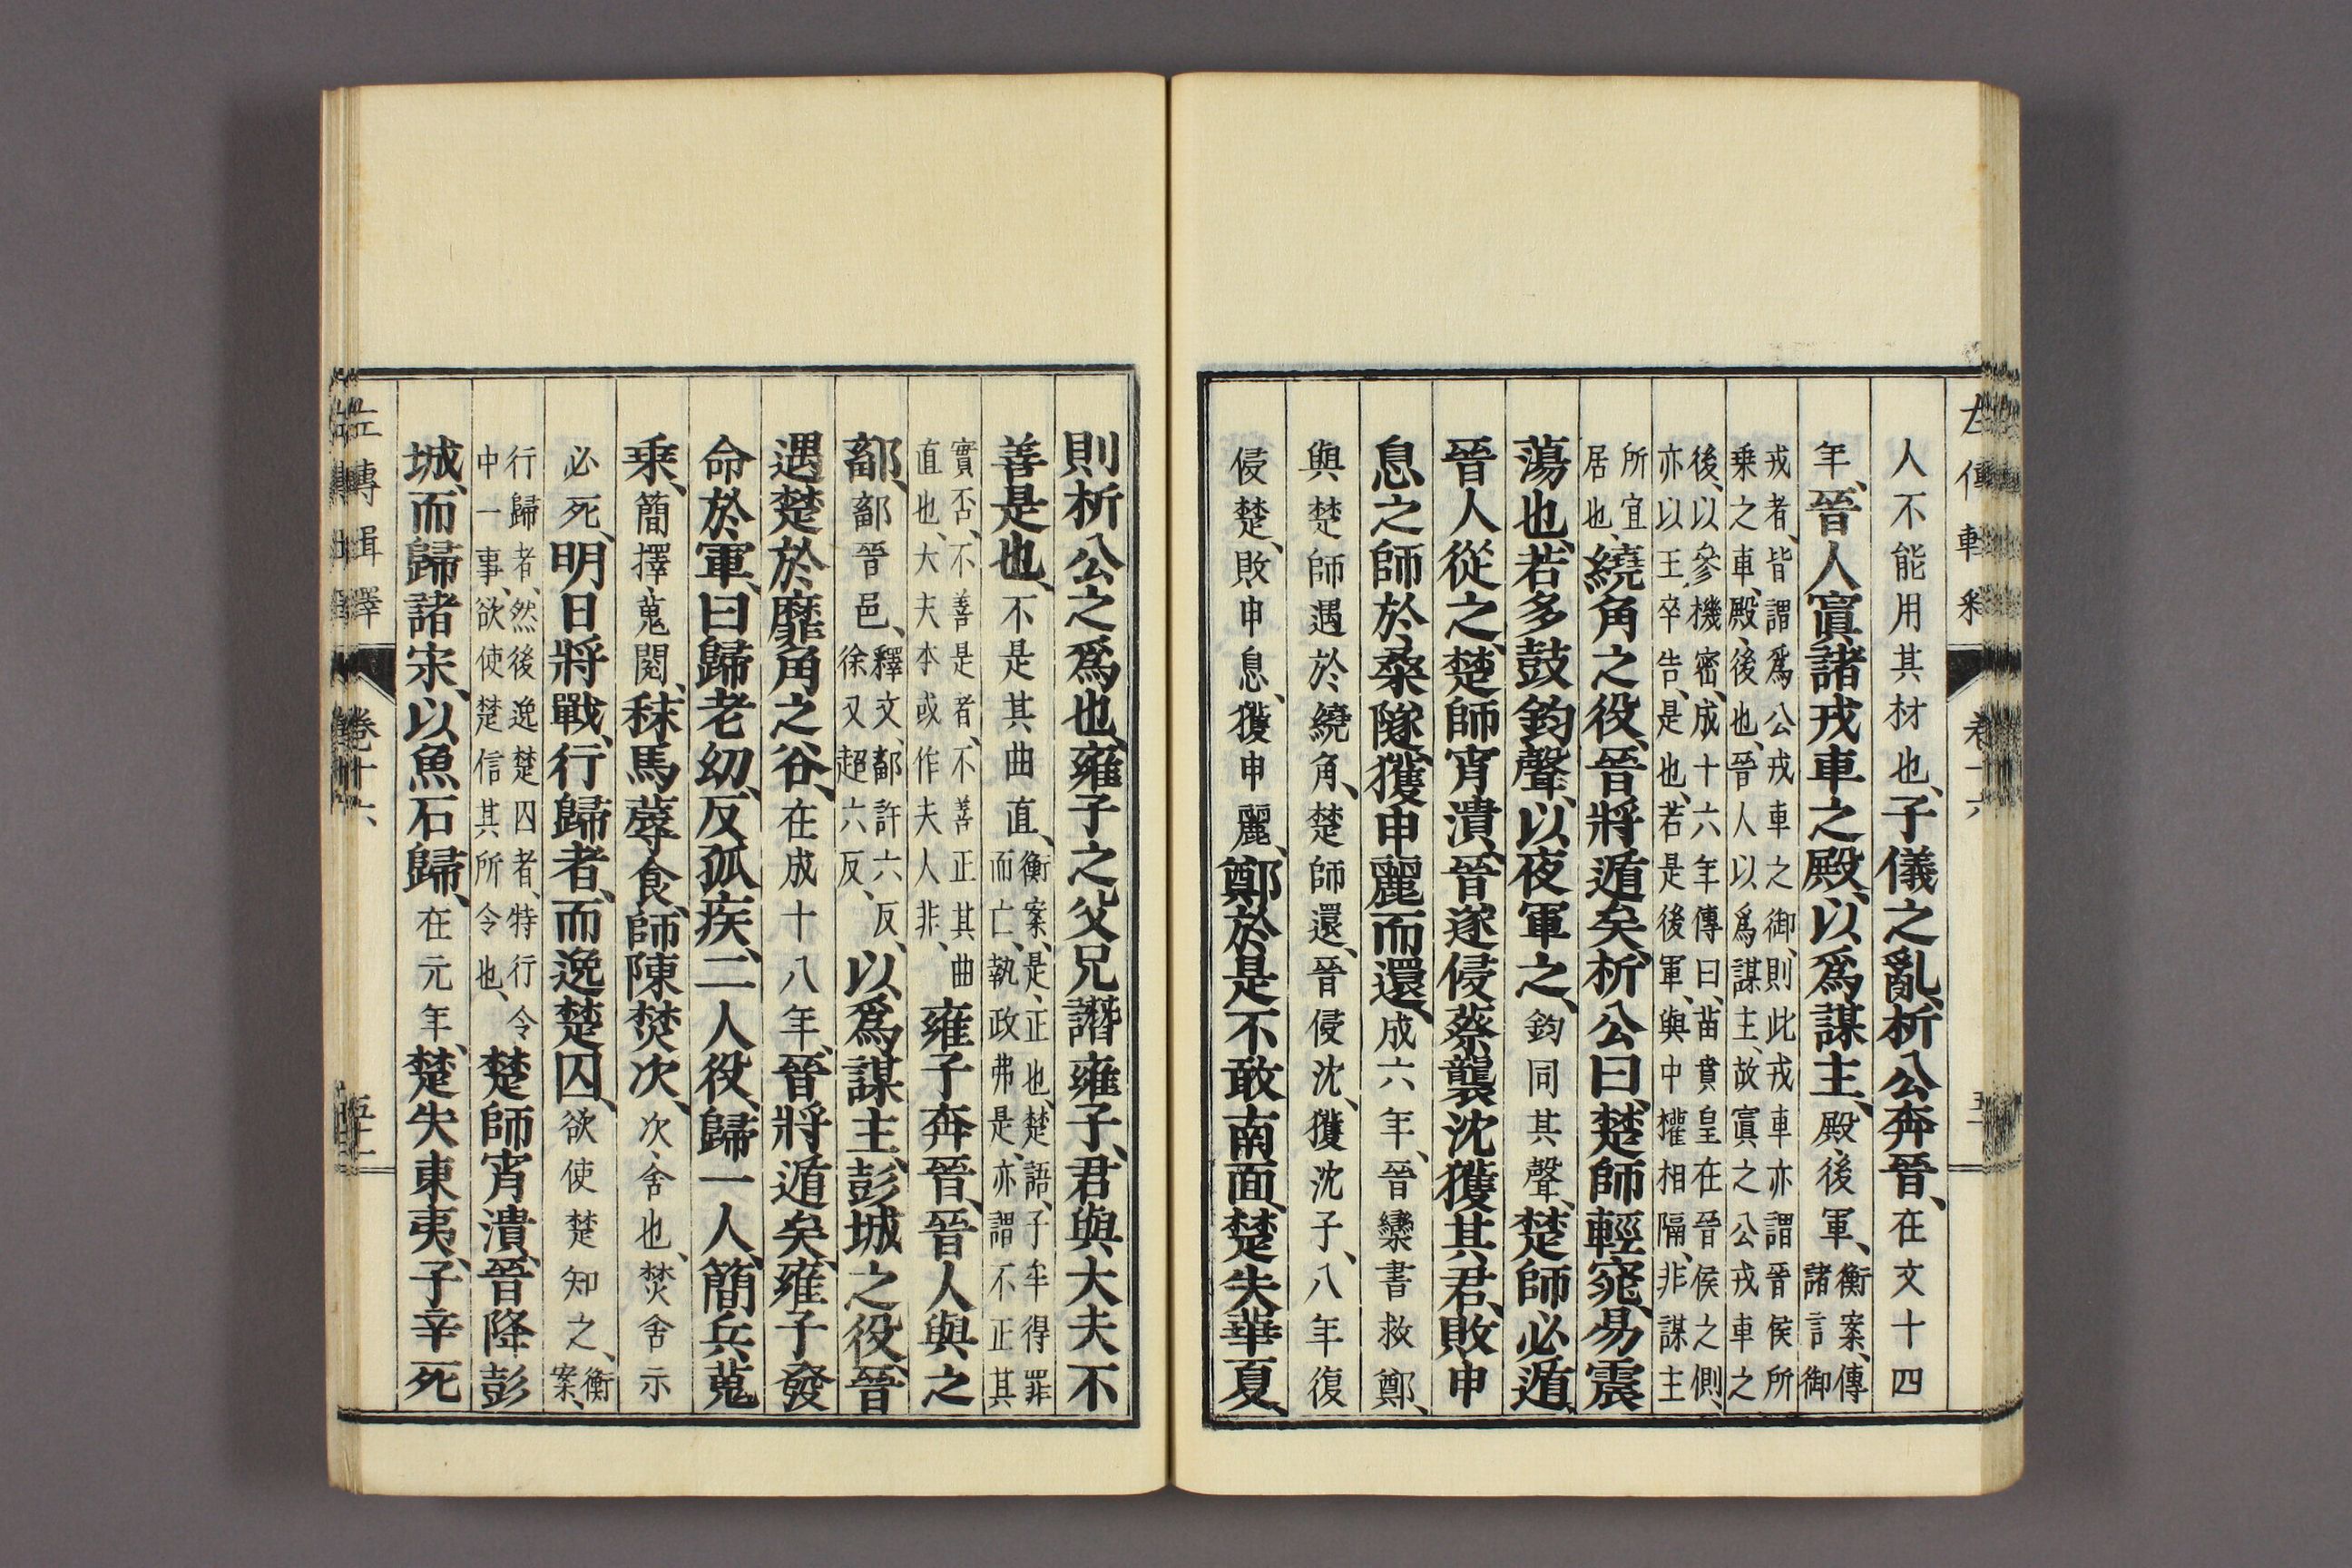 人不能用其材也、子儀之亂、析公奔晉、在文十四
年、晉人寘諸戎車之殿、以爲謀主、殿、後軍、衡案、傳諸言御
戎者、皆謂爲公戎車之御、則此戎車亦謂晉侯所
乘之車、殿、後也、晉人以爲謀主、故寘之公戎車之
後、以參機密、成十六年傳曰、苗賁皇在晉侯之側、
亦以王卒告、是也、若是後軍、與中權相隔、非謀主
所宜
居也、
繞角之役、晉將遁矣、析公曰、楚師輕窕、易震
蕩也、若多鼓鈞聲、以夜軍之、鈞同其聲、楚師必遁、
晉人從之、楚師宵潰、晉遂侵蔡襲沈、獲其君、敗申
息之師於桑隧、獲申麗而還、成六年、晉欒書救鄭、
與楚師遇於繞角、楚師還、晉侵沈、獲沈子、八年復
侵楚、敗申息、獲申麗、鄭於是不敢南面、楚失華夏、
則析公之爲也、雍子之父兄譖雍子、君與大夫不
善是也、不是其曲直、衡案、是、正也、楚語、子牟得罪而亡、執政弗是、亦謂不正其
實否、不善是者、不善正其曲
直也、大夫本或作夫人非、
雍子奔晉、晉人與之
鄐、鄐晉邑、釋文、鄐許六反、徐又超六反、以爲謀主、彭城之役、晉
遇楚於靡角之谷、在成十八年、晉將遁矣、雍子發
命於軍、曰歸老幼、反孤疾、二人役、歸一人、簡兵蒐
乘、簡擇、蒐閱、秣馬蓐食、師陳焚次、次、舍也、焚舍示
必死、明日將戰、行歸者、而逸楚囚、欲使楚知之、衡案、
行歸者、然後逸楚囚者、特行令
中一事、欲使楚信其所令也、
楚師宵潰、晉降彭
城、而歸諸宋、以魚石歸、在元年、楚失東夷、子辛死
左傳輯釋 卷十六